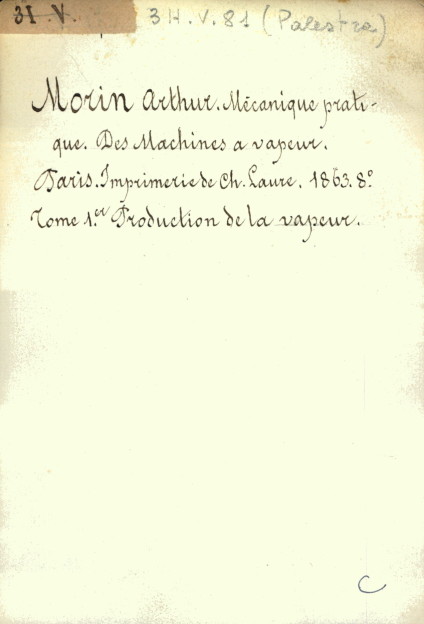 31.V. 3H.V.81 (Palestra)
Morin Arthur. Mécanique prati-
que. Des Machines a vapeur.
Paris. Imprimerie de Ch. Laure. 1863. 8.º
Tome 1.er Production de la vapeur.
C